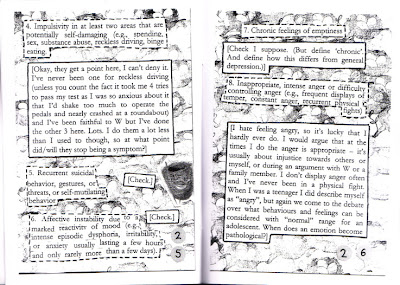 4. Impulsivity in at least two areas that are
potentially self-damaging (e.g., spending,
sex, substance abuse, reckless driving, binge
eating.
[Okay, they get a point here, I can't deny it.
I've never been one for reckless driving
(unless you count the fact it took me 4 tries
to pass my test as I was so anxious about it
that I'd shake too much to operate the
pedals and nearly crashed at a roundabout)
and I've been faithful to W but I've done
the other 3 here. Lots. I do them a lot less
than I used to though, so at what point
did/will they stop being a symptom?]
5. Recurrent suicidal
behavior, gestures, or
threats, or self-mutilating
behavior
[Check.]
6. Affective instability due to a
marked reactivity of mood (e.g.,
intense episodic dysphoria, irritability,
or anxiety usually lasting a few hours
and only rarely more than a few days).
[Check.]
2
5
7. Chronic feelings of emptiness
[Check I suppose. (But define 'chronic'.
And define how this differs from general
depression.)]
8. Inappropriate, intense anger or difficulty
controlling anger (e.g., frequent displays of
temper, constant anger, recurrent physical
fights)
[I hate feeling angry, so it's lucky that I
hardly ever do. I would argue that at the
times I do the anger is appropriate – it's
usually about injustice towards others or
myself, or during an argument with W or a
family member. I don't display anger often
and I've never been in a physical fight.
When I was a teenager I did describe myself
as "angry", but again we come to the debate
over what behaviours and feelings can be
considered with "normal" range for an
adolescent. When does an emotion become
pathological?]
2 6